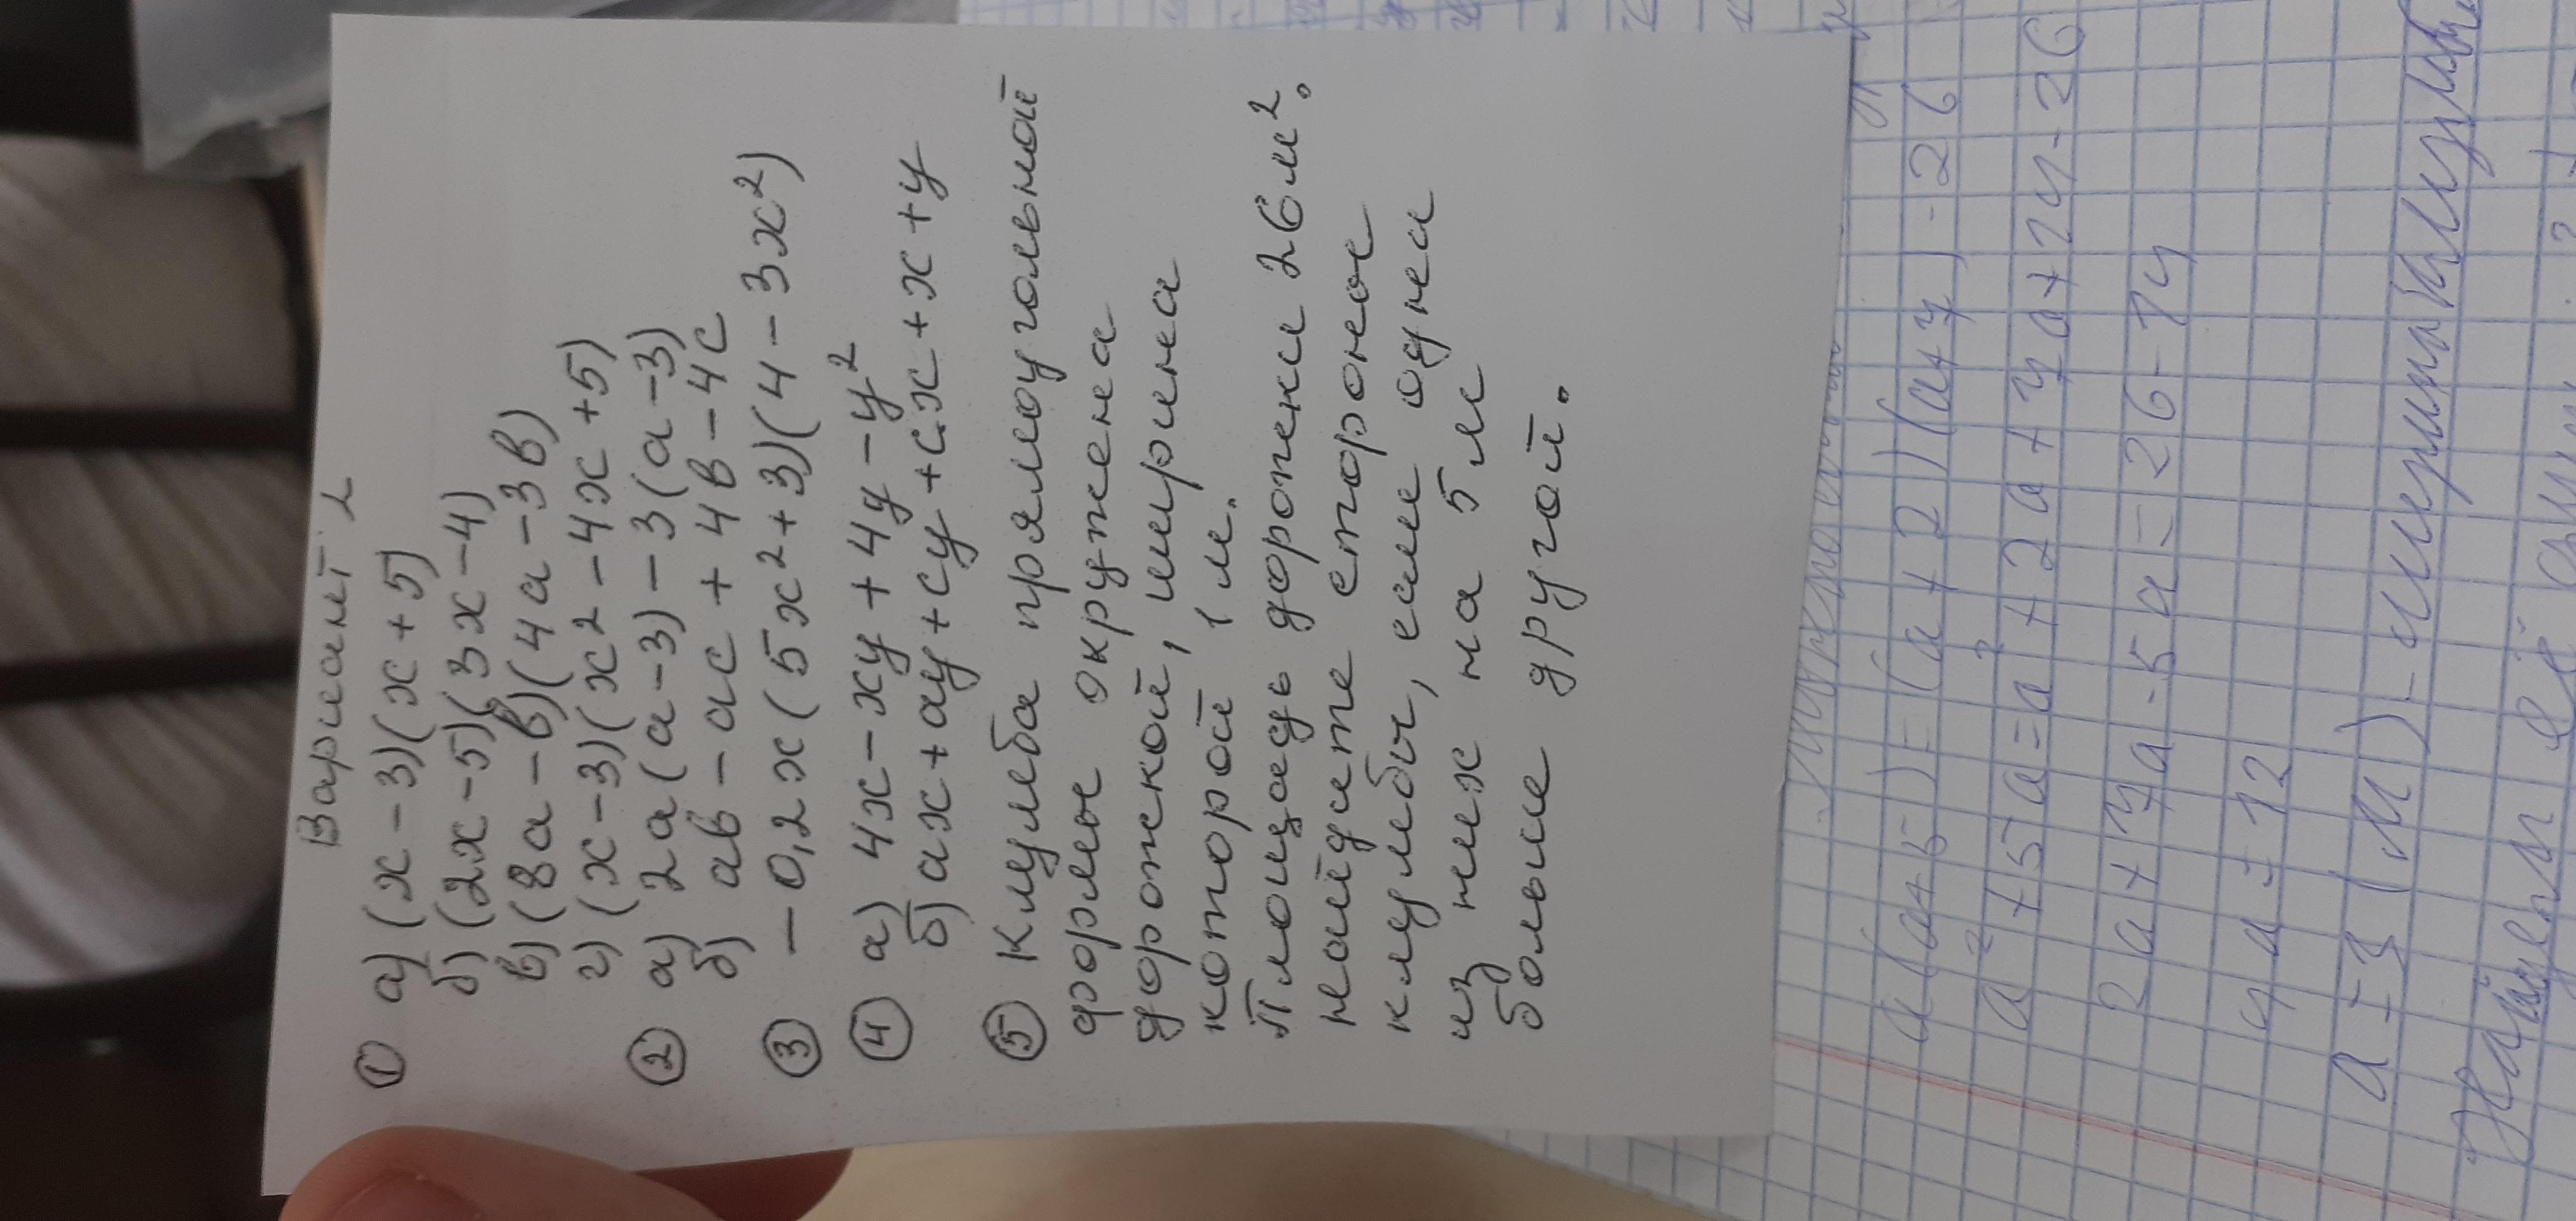 Вариант 2
① а) (x-3)(x+5)
б) (2x-5)(3x-4)
в) (8a-b)(4a-3b)
г) (x-3)(x²-4x+5)
② а) 2a(a-3)-3(a-3)
б) ab-ac+4b-4c
③ -0,2x(5x²+3)(4-3x²)
④ а) 4x-xy+4y-y²
б) ax+ay+cy+cx+x+y
⑤ Клумба прямоугольной
форме окружена
дорожкой, ширина
которой 1 м.
Площадь дорожки 26 м².
найдите стороное
клумбы, если одна
из них на 5 м
больше другой.
a(a+5)=(a+2)(a+7)-26
a²+5a=a²+2a+7a+14-26
2a+7a-5a=26-14
4a=12
a=3 (м)-ширина клумбы
Найдем её